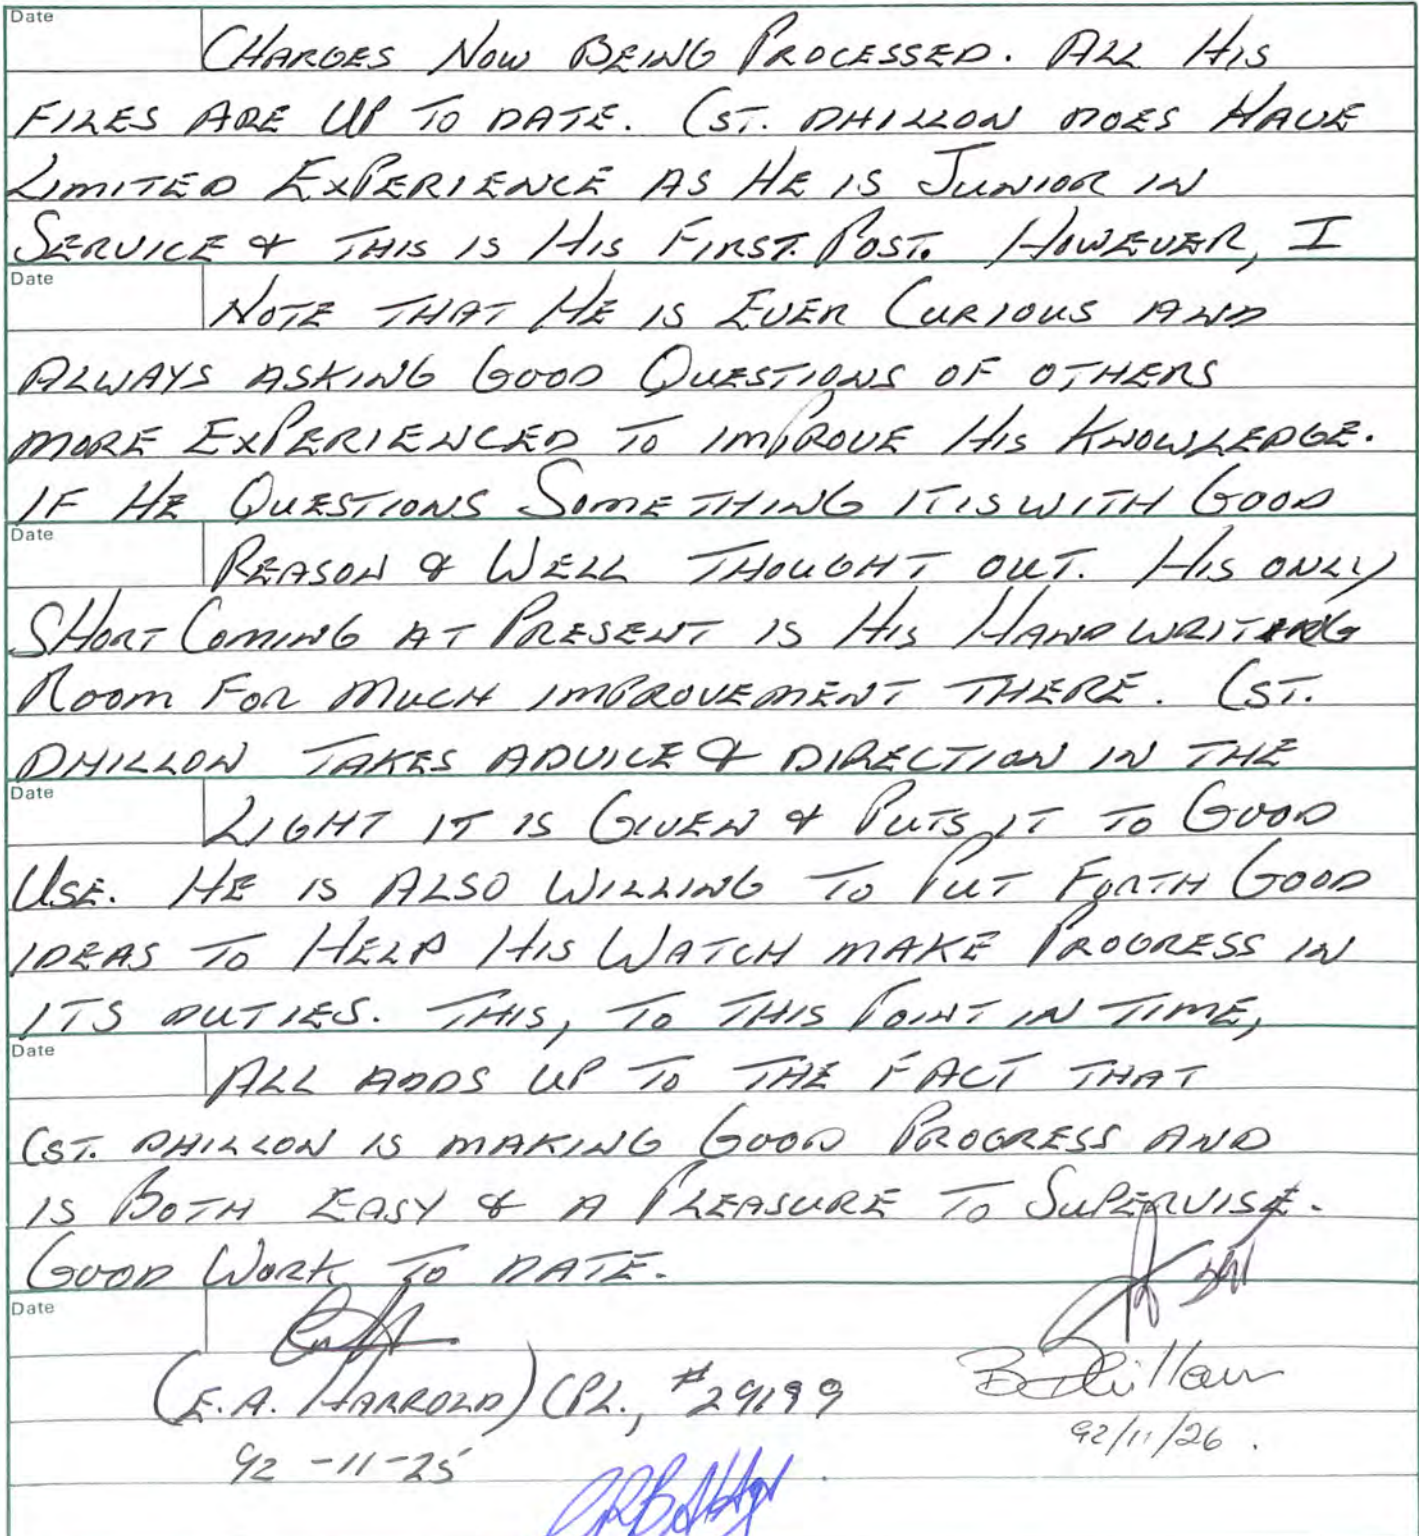 Date
CHARGES NOW BEING PROCESSED. ALL HIS
FILES ARE UP TO DATE. CST. DHILLON DOES HAVE
LIMITED EXPERIENCE AS HE IS JUNIOR IN
SERVICE & THIS IS HIS FIRST POST. HOWEVER, I
Date
NOTE THAT HE IS EVER CURIOUS AND
ALWAYS ASKING GOOD QUESTIONS OF OTHERS
MORE EXPERIENCED TO IMPROVE HIS KNOWLEDGE.
IF HE QUESTIONS SOMETHING IT IS WITH GOOD
Date
REASON & WELL THOUGHT OUT. HIS ONLY
SHORT COMING AT PRESENT IS HIS HANDWRITING
ROOM FOR MUCH IMPROVEMENT THERE. CST.
DHILLON TAKES ADVICE & DIRECTION IN THE
Date
LIGHT IT IS GIVEN & PUTS IT TO GOOD
USE. HE IS ALSO WILLING TO PUT FORTH GOOD
IDEAS TO HELP HIS WATCH MAKE PROGRESS IN
ITS DUTIES. THIS, TO THIS POINT IN TIME,
Date
ALL ADDS UP TO THE FACT THAT
CST. DHILLON IS MAKING GOOD PROGRESS AND
IS BOTH EASY & A PLEASURE TO SUPERVISE.
GOOD WORK TO DATE.
Date
(E.A. HARROLD) CPL., #29199
B Dhillon
92/11/26.
92-11-25